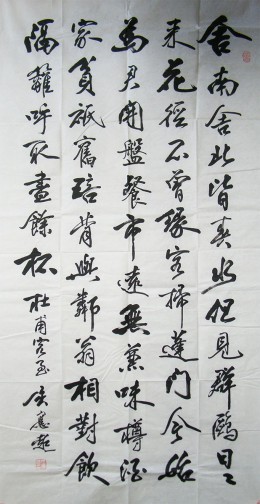 舍南舍北皆春水但見群鷗日々
来花徑不曾緣客掃蓬門今始
為君開盤餐市遠無兼味樽酒
家貧祇舊醅肯與鄰翁相對飲
隔籬呼取盡餘杯 杜甫客至